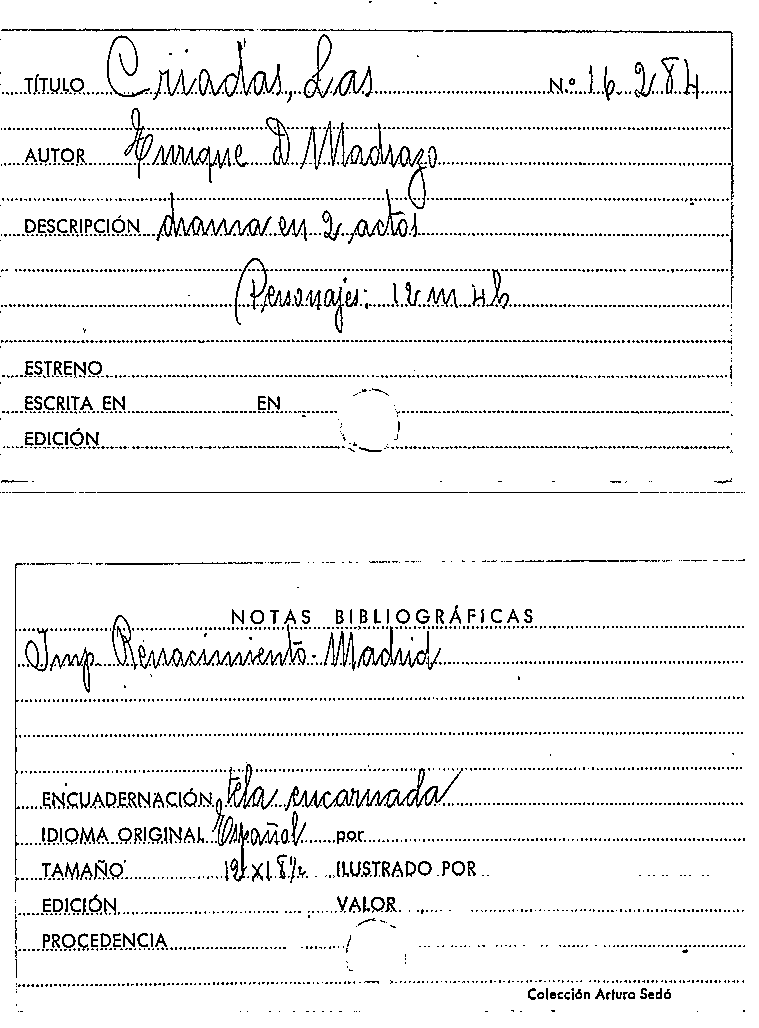 TÍTULO Criadas, Las N.º 16.284
AUTOR Enrique D Madrazo
DESCRIPCIÓN drama en 2 actos
Personajes: 12 m 4 h
ESTRENO
ESCRITA EN EN
EDICIÓN
NOTAS BIBLIOGRÁFICAS
Imp. Renacimiento - Madrid
ENCUADERNACIÓN tela encarnada
IDIOMA ORIGINAL Español por
TAMAÑO 12 x 18½ ILUSTRADO POR
EDICIÓN VALOR
PROCEDENCIA
Colección Arturo Sedó